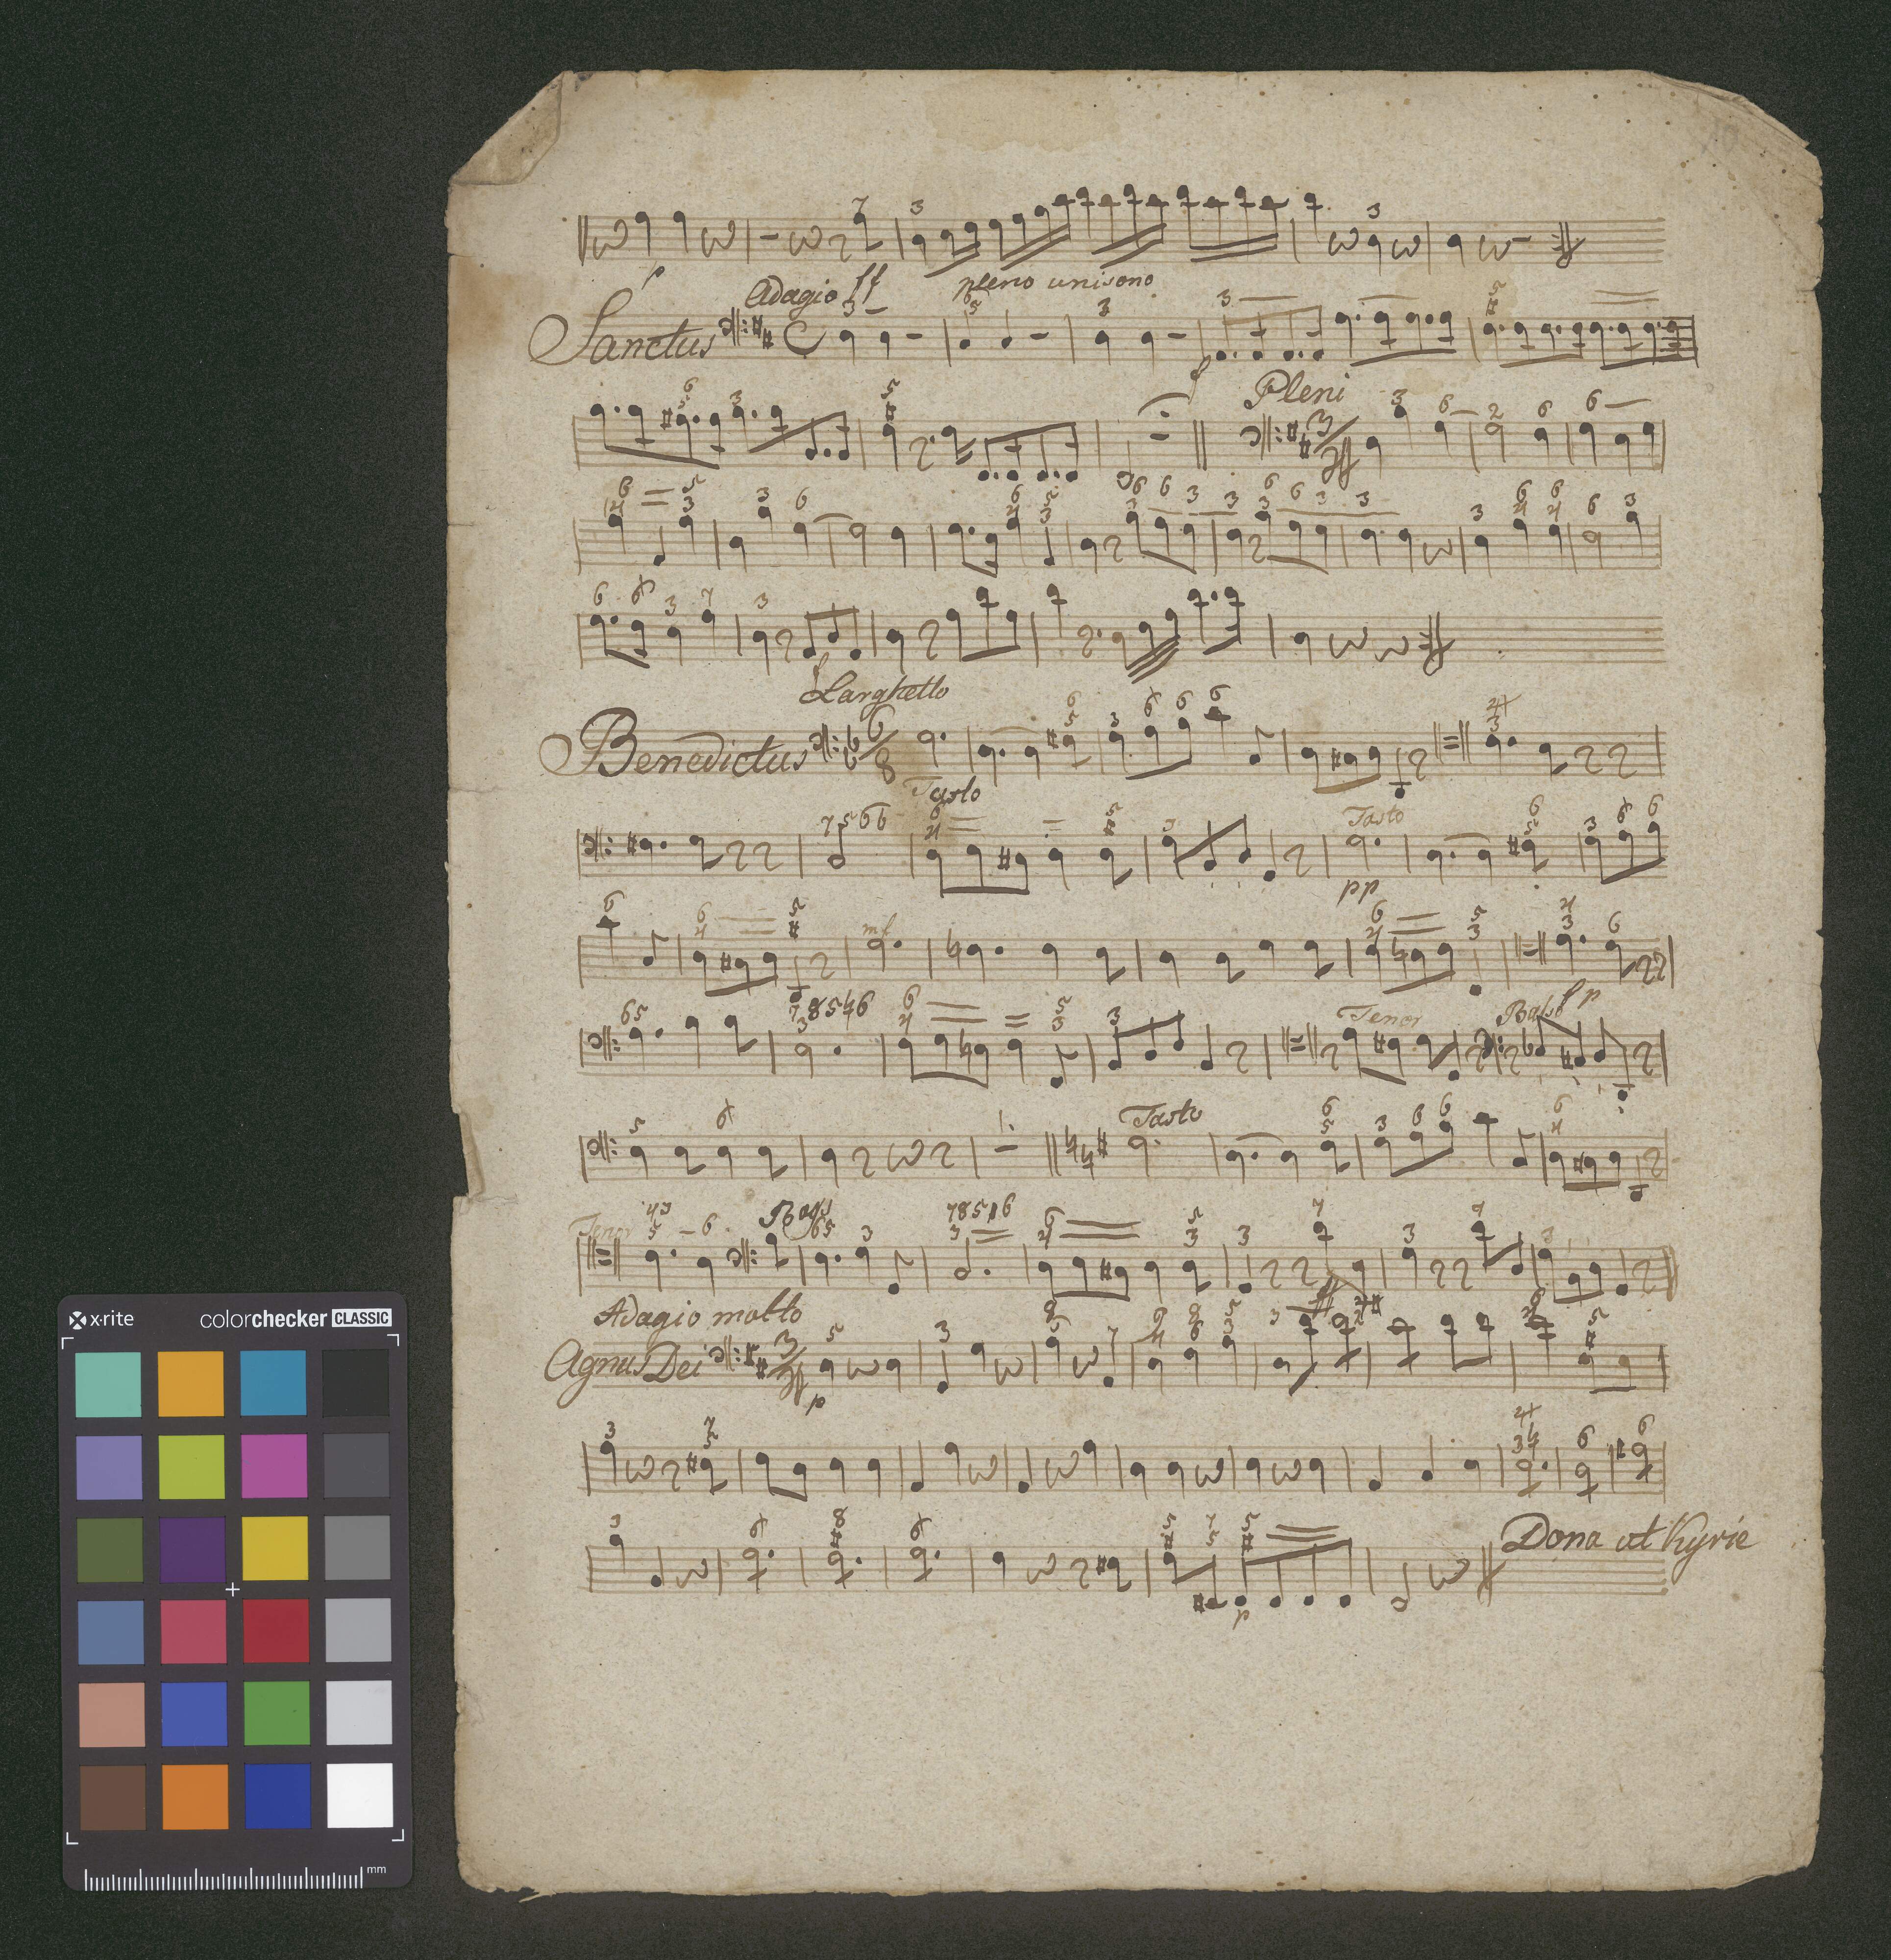 p
pleno unisono
Adagio ff
Sanctus
f
Pleni
f
Larghetto
Benedictus
Tasto
Tasto
pp
mf
Tenor
Basso
f p
Tasto
Tenor
Adagio molto
Agnus Dei
p
Dona ut Kyrie
p
x-rite
colorchecker CLASSIC
mm